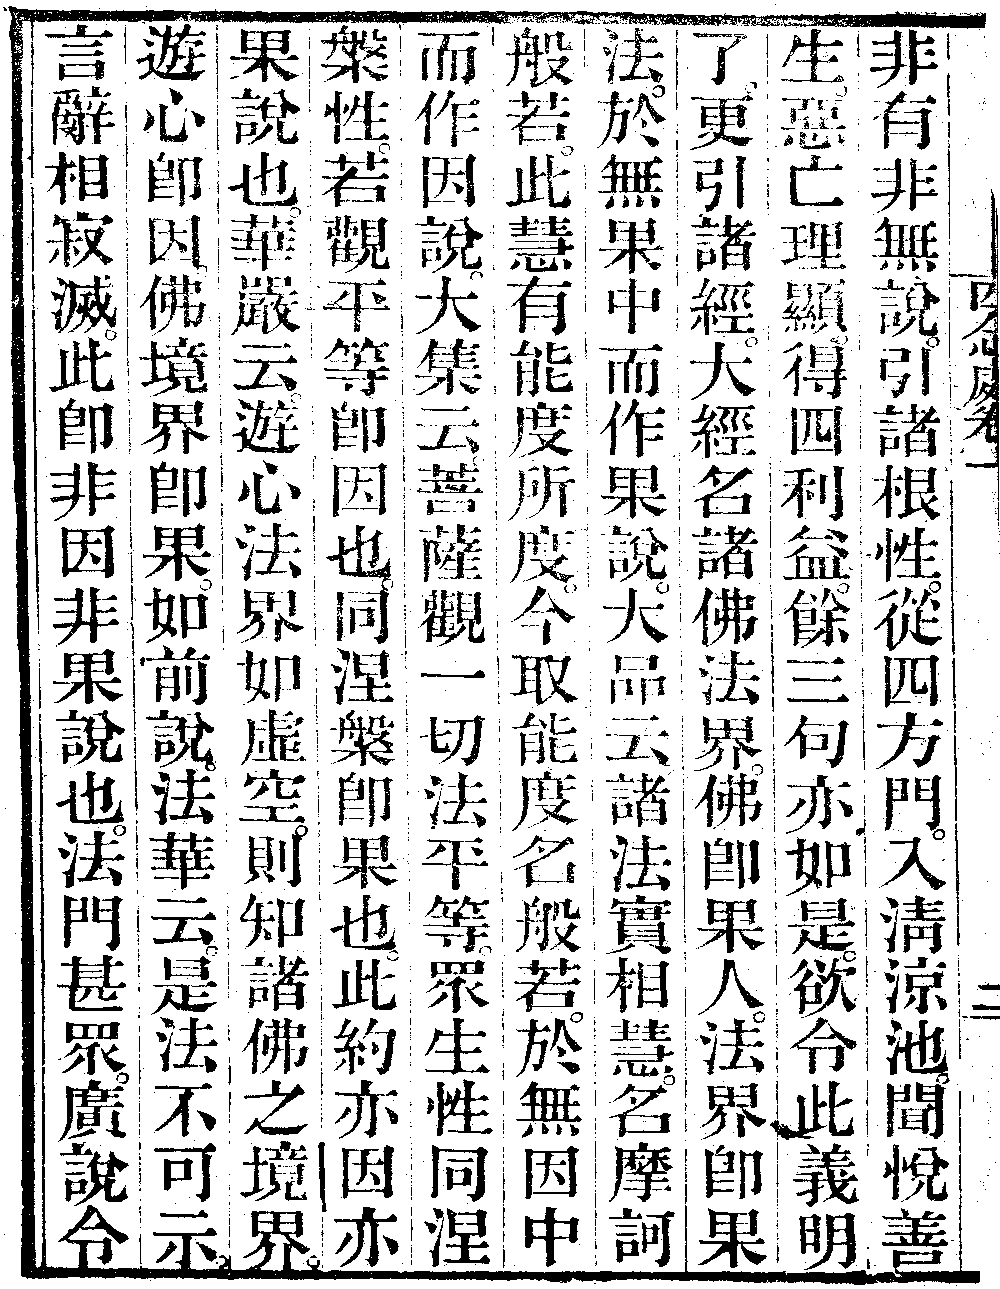 非有非無說。引諸根性。從四方門。入清涼池。聞悅善
生。惡亡理顯。得四利益。餘三句亦如是。欲令此義明
了。更引諸經。大經名諸佛法界。佛卽果人。法界卽果
法。於無果中而作果說。大品云諸法實相慧。名摩訶
般若。此慧有能度所度。今取能度名般若。於無因中
而作因說。大集云。菩薩觀一切法平等。眾生性同涅
槃性。若觀平等卽因也。同涅槃卽果也。此約亦因亦
果說也。華嚴云。遊心法界如虛空。則知諸佛之境界。
遊心卽因。佛境界卽果。如前說。法華云。是法不可示。
言辭相寂滅。此卽非因非果說也。法門甚眾。廣說令
四念處卷一
二